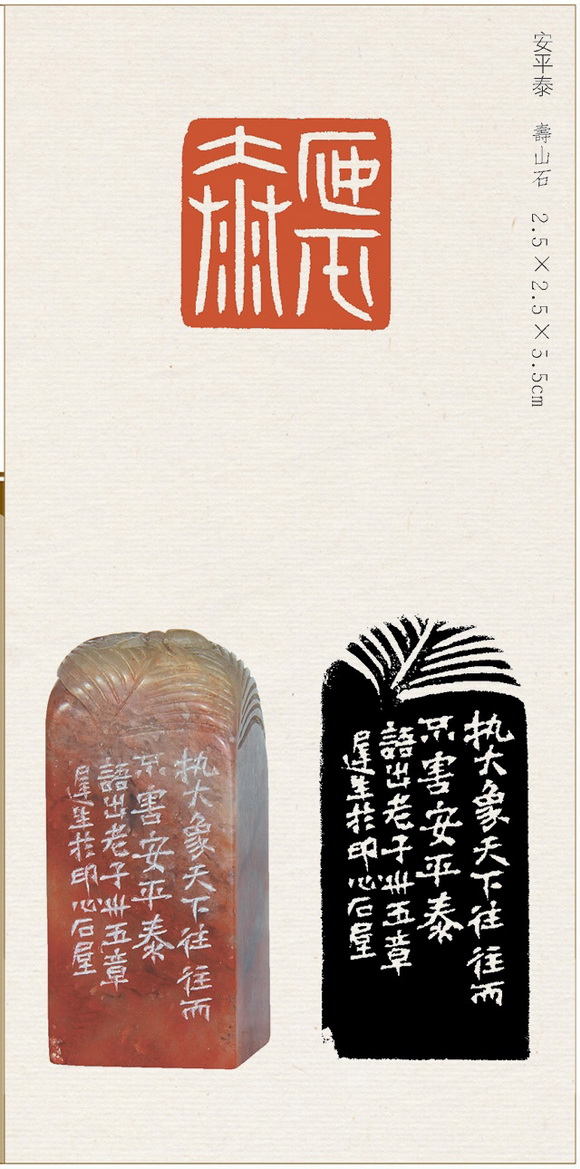 安平泰 壽山石 2.5×2.5×5.5cm
安平泰
執大象天下往往而
不害安平泰
語出老子卅五章
遲生於印心石屋
執大象天下往往而
不害安平泰
語出老子卅五章
遲生於印心石屋